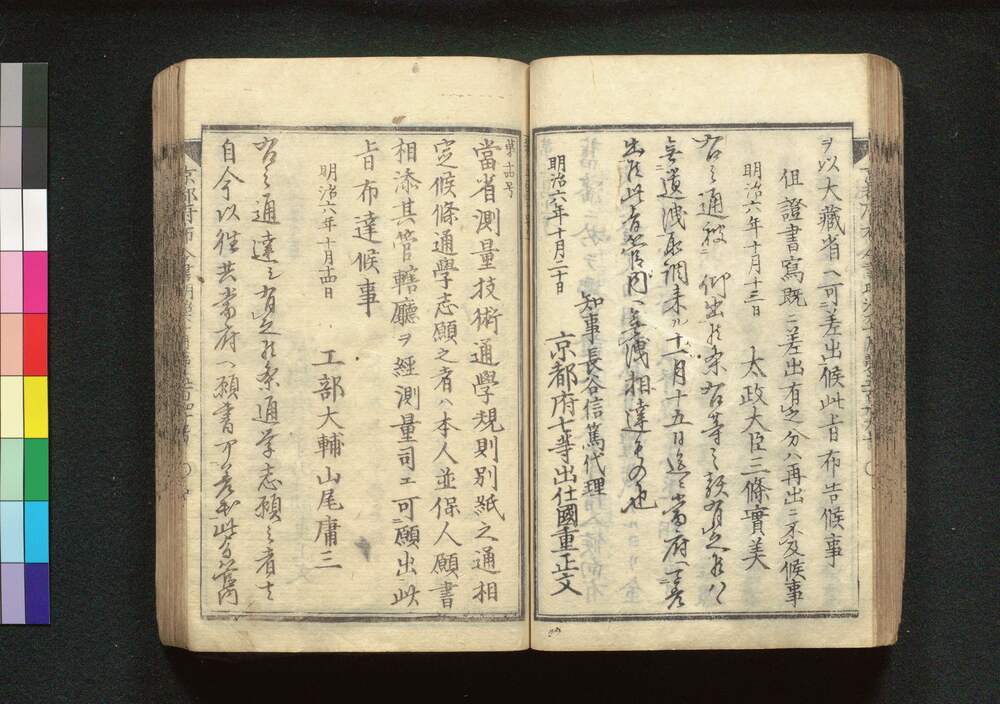 ヲ以大藏省ヘ可差出候此旨布告候事
但證書寫既ニ差出有之分ハ再出ニ不及候事
明治六年十月十三日
太政大臣三條實美
右之通被仰出候条右等之類有之候ハヽ
無遺洩取調来ル十一月十五日迄ニ當府ヘ可差
出候此旨管内ヘ無洩相達もの也
明治六年十月二十日
知事長谷信篤代理
京都府七等出仕國重正文
當省測量技術通學規則別紙之通相
定候條通學志願之者ハ本人並保人願書
相添其管轄廳ヲ經測量司エ可願出此
旨布達候事
明治六年十月
工部大輔山尾庸三
右之通達之有之候条通学志願之者ハ
自今以往共當府ヘ願書可差出此旨管内